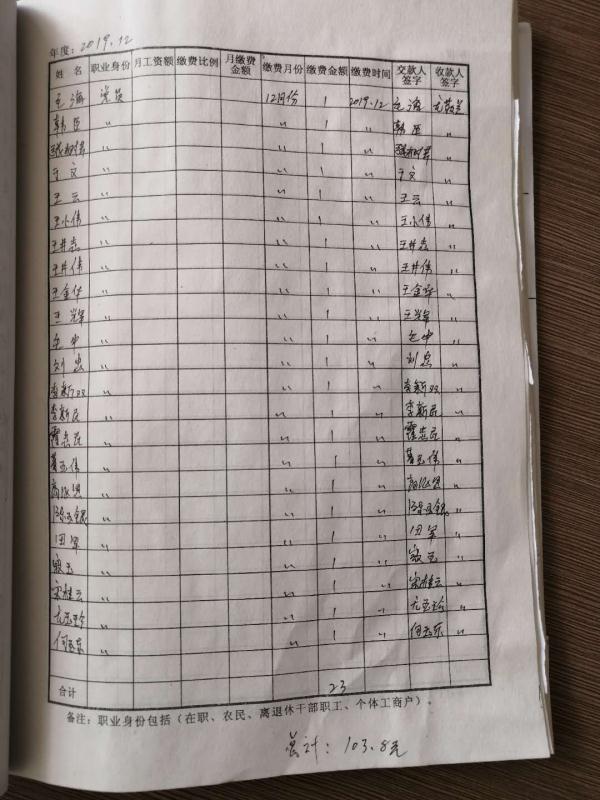 年度：2019.12
姓 名 职业身份 月工资额 缴费比例 月缴费金额 缴费月份 缴费金额 缴费时间 交款人签字 收款人签字
海 党员 12月份 1 2019.12 海
韩臣 〃 〃 1 〃 韩臣 〃
〃 〃 1 〃 〃
于文 〃 〃 1 〃 于文 〃
王云 〃 〃 1 〃 王云 〃
王小伟 〃 〃 1 〃 王小伟 〃
王井志 〃 〃 1 〃 王井志 〃
王井伟 〃 〃 1 〃 王井伟 〃
王金华 〃 〃 1 〃 王金华 〃
王辉 〃 〃 1 〃 王辉 〃
中 〃 〃 1 〃 中 〃
刘忠 〃 〃 1 〃 刘忠 〃
李新双 〃 〃 1 〃 李新双 〃
李新民 〃 〃 1 〃 李新民 〃
霍志民 〃 〃 1 〃 霍志民 〃
玉伟 〃 〃 1 〃 玉伟 〃
高 〃 〃 1 〃 高 〃
〃 〃 1 〃 〃
田军 〃 〃 1 〃 田军 〃
〃 〃 1 〃 〃
宋桂云 〃 〃 1 〃 宋桂云 〃
尤玉玲 〃 〃 1 〃 尤玉玲 〃
何玉东 〃 〃 1 〃 何玉东 〃
合计 23
备注：职业身份包括（在职、农民、离退休干部职工、个体工商户）。
总计：103.8元